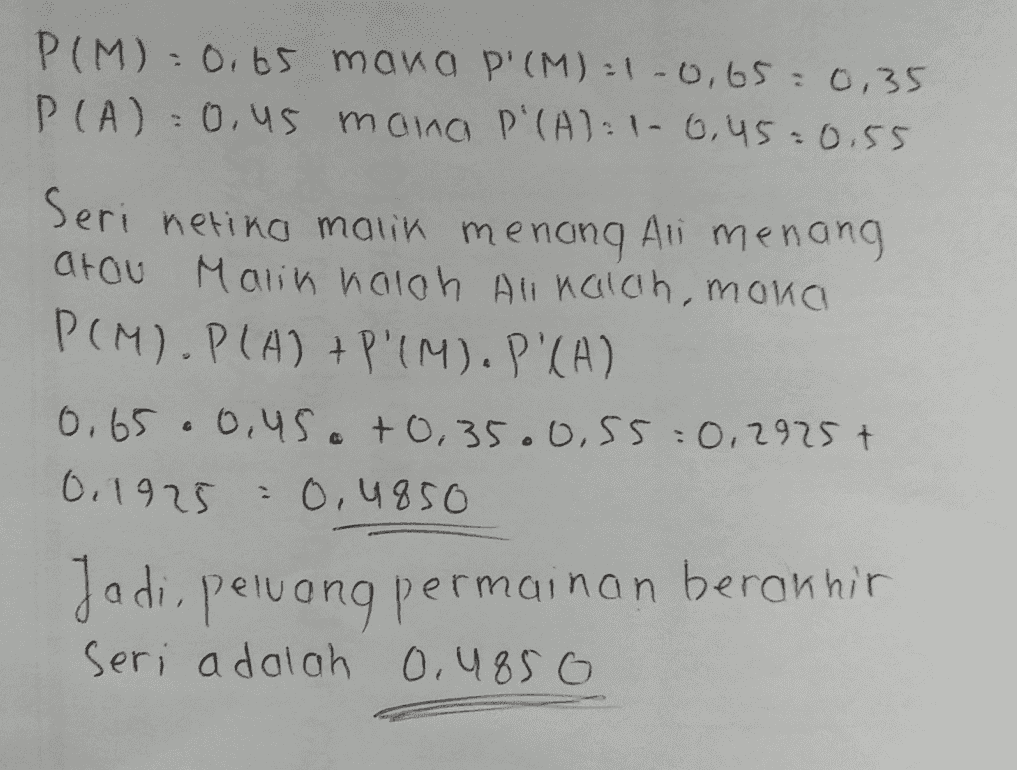 P(M) = 0,65 maka P'(M) = 1 - 0,65 = 0,35
P(A) = 0,45 maka P'(A) = 1 - 0,45 = 0,55
Seri ketika malik menang Ali menang
atau Malik kalah Ali kalah, maka
P(M) . P(A) + P'(M) . P'(A)
0,65 . 0,45 . + 0,35 . 0,55 = 0,2925 +
0,1925 = 0,4850
Jadi, peluang permainan berakhir
Seri adalah 0,4850